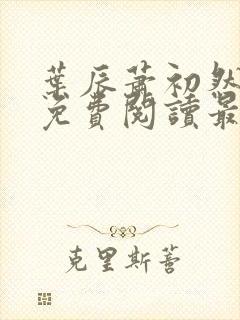 葉辰蕭初然
免費閱讀最
克里斯蒂